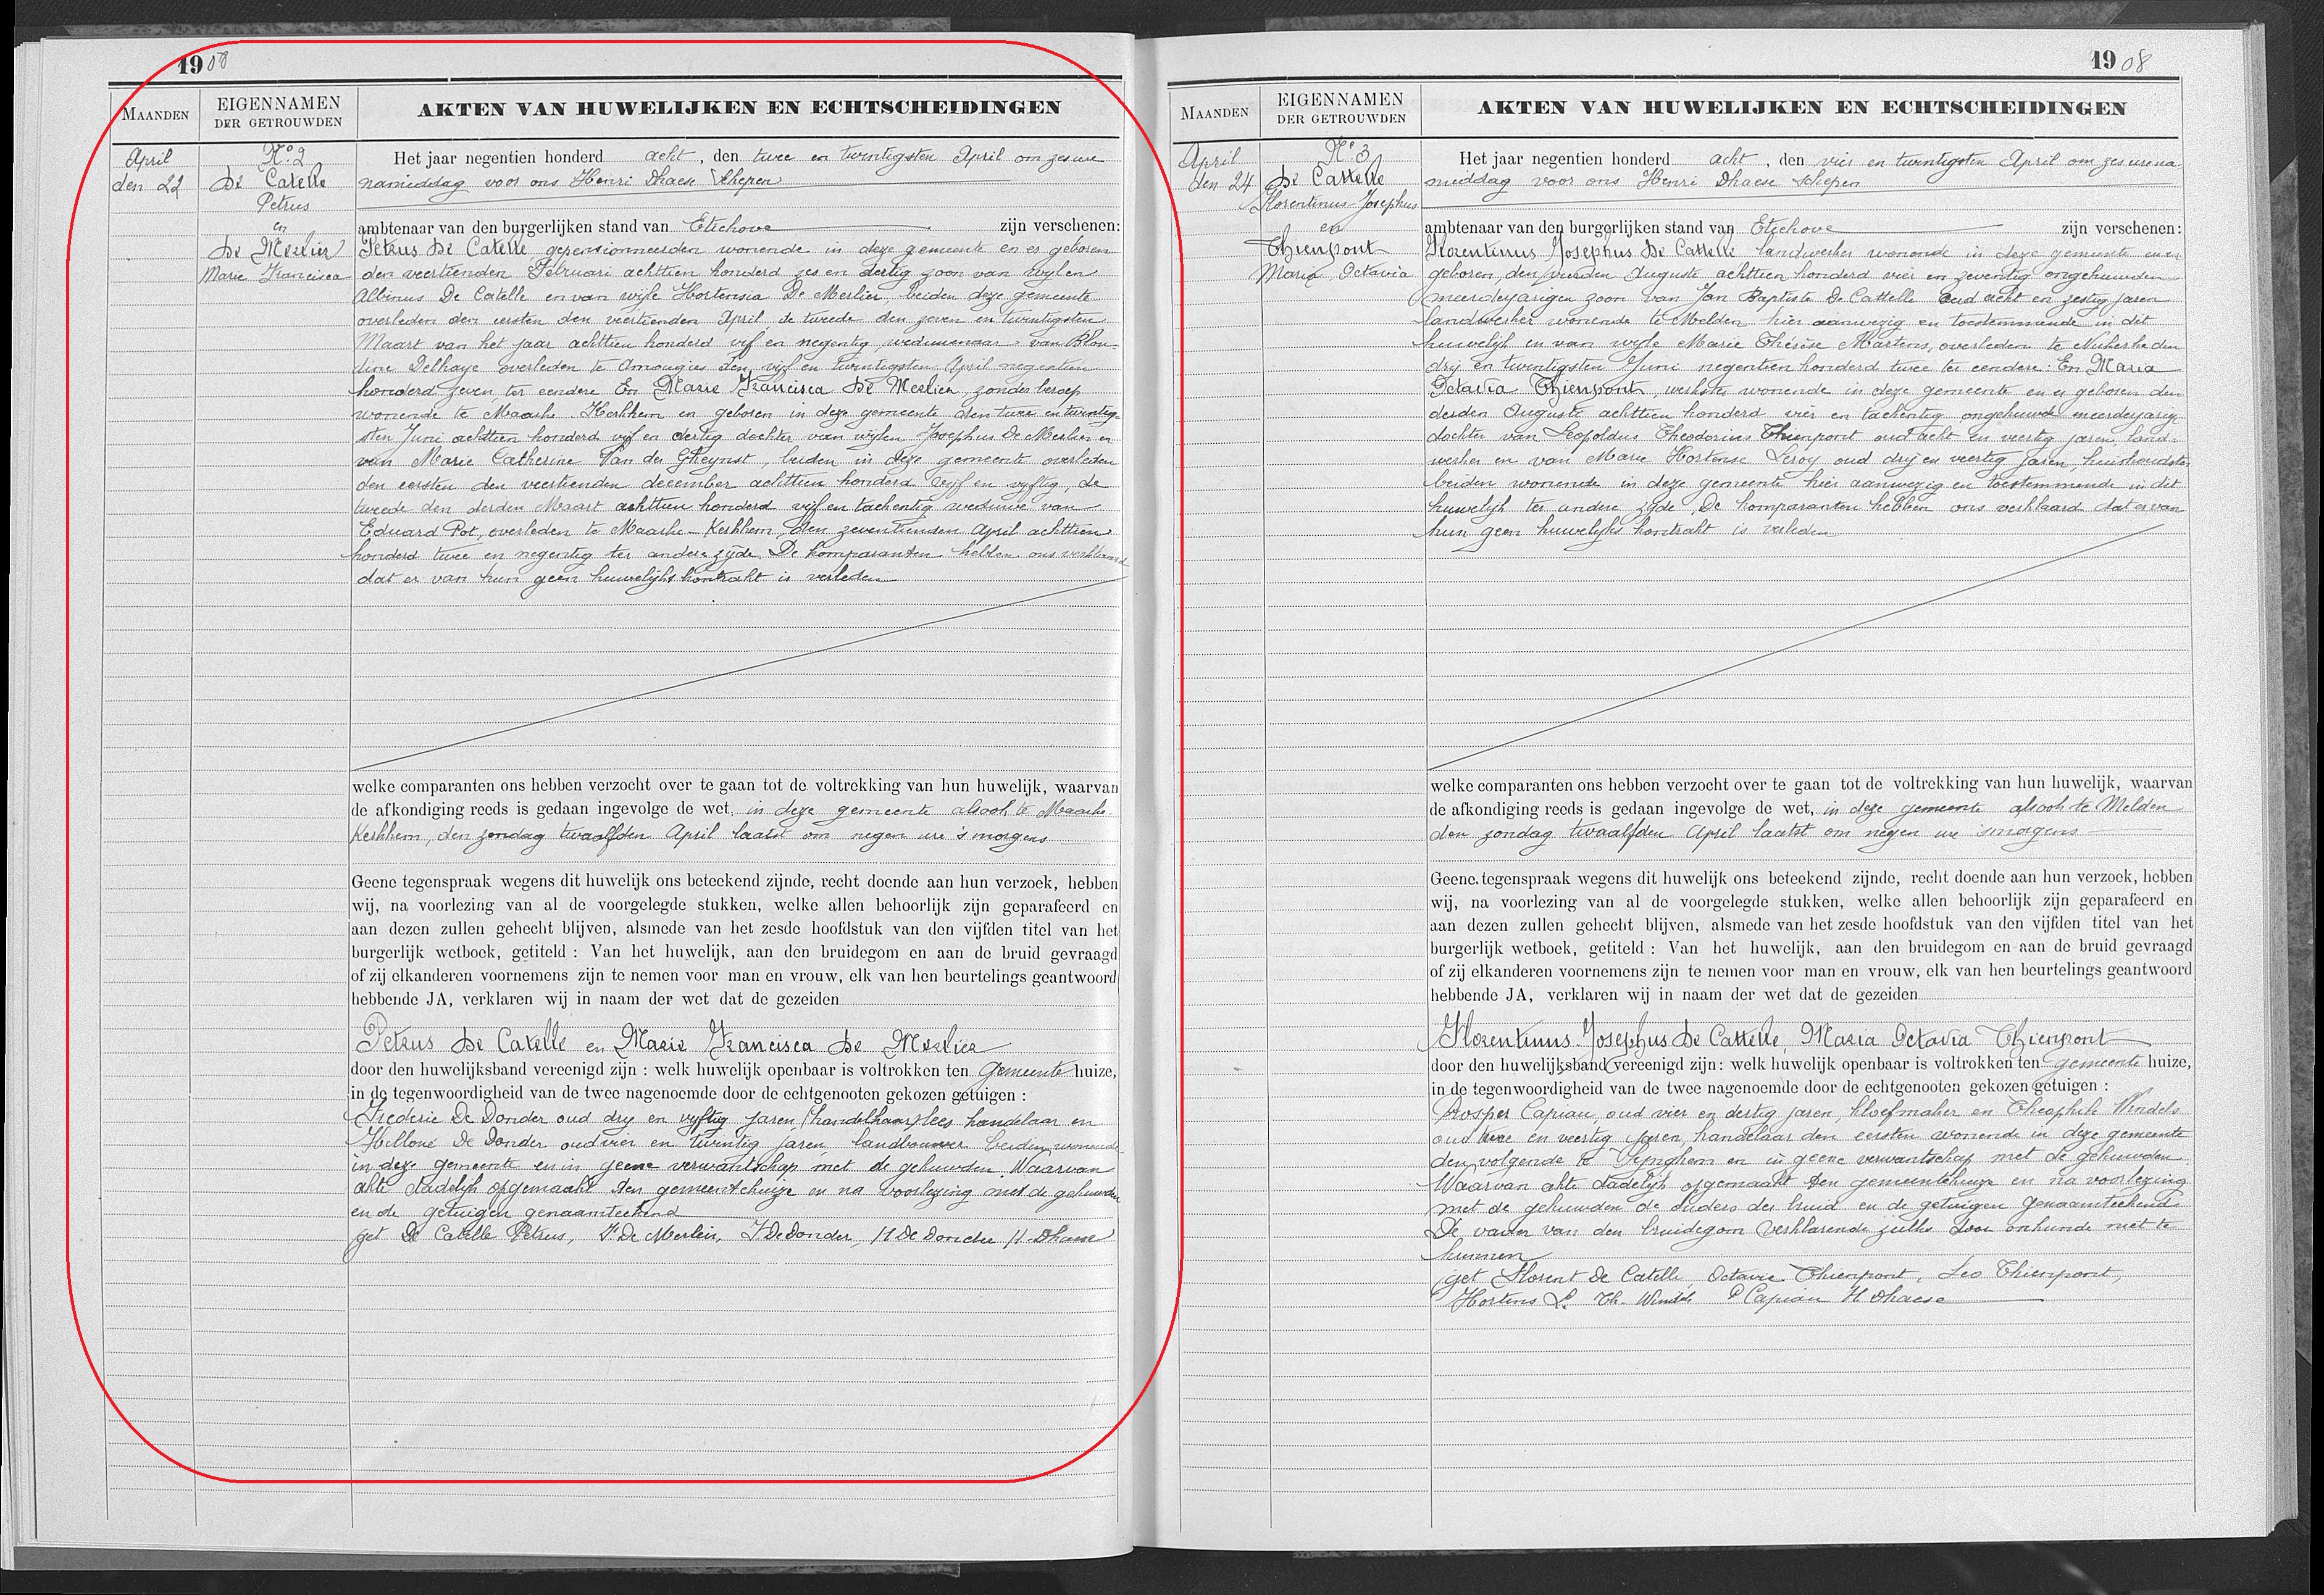 1908
MAANDEN
EIGENNAMEN DER GETROUWDEN
AKTEN VAN HUWELIJKEN EN ECHTSCHEIDINGEN
April
den 22
No. 2
De Catelle
Petrus
en
De Merlier
Marie Francisca
Het jaar negentien honderd acht, den twee en twintigsten April om zes ure
namiddag voor ons Henri Dhaese Schepen
ambtenaar van den burgerlijken stand van Etichove zijn verschenen:
Petrus De Catelle gepensionneerden wonende in deze gemeente en er geboren
den veertienden Februari achttien honderd zes en dertig zoon van wijlen
Albinus De Catelle en van wijle Hortensia De Merlier, beiden deze gemeente
overleden den eersten den veertienden April de tweede den zeven en twintigsten
Maart van het jaar achttien honderd vijf en negentig, weduwenaar van Blon
dine Delhaye overleden te Amougies den vijf en twintigsten April negentien
honderd zeven, ter eendere En Marie Francisca De Merlier zonder beroep
wonende te Maarke-Kerkhem en geboren in deze gemeente den twee en twintig-
sten Juni achttien honderd vijf en dertig dochter van wijlen Josephus De Merlier en
van Marie Catherine Van der Gheynst, beiden in deze gemeente overleden
den eersten den veertienden december achttien honderd vijf en vyftig, de
tweede den derden Maart achttien honderd vijf en tachentig weduwe van
Eduard Pot, overleden te Maarke-Kerkhem, den zeventienden April achttien
honderd twee en negentig ter andere zyde. De komparanten hebben ons verklaard
dat er van hun geen huwelijks kontrakt is verleden
welke comparanten ons hebben verzocht over te gaan tot de voltrekking van hun huwelijk, waarvan
de afkondiging reeds is gedaan ingevolge de wet, in deze gemeente alsook te Maarke-
Kerkhem, den zondag twaalfden April laatst om negen ure 's morgens
Geene tegenspraak wegens dit huwelijk ons beteekend zijnde, recht doende aan hun verzoek, hebben
wij, na voorlezing van al de voorgelegde stukken, welke allen behoorlijk zijn geparafeerd en
aan dezen zullen gehecht blijven, alsmede van het zesde hoofdstuk van den vijfden titel van het
burgerlijk wetboek, getiteld : Van het huwelijk, aan den bruidegom en aan de bruid gevraagd
of zij elkanderen voornemens zijn te nemen voor man en vrouw, elk van hen beurtelings geantwoord
hebbende JA, verklaren wij in naam der wet dat de gezeiden
Petrus De Catelle en Marie Francisca De Merlier
door den huwelijksband vereenigd zijn : welk huwelijk openbaar is voltrokken ten Gemeente huize,
in de tegenwoordigheid van de twee nagenoemde door de echtgenooten gekozen getuigen :
Frederic De Donder oud dry en vyftig jaren, (handelhaar) lees handelaar en
De Donder oud vier en twintig jaren, landbouwer beiden wonende
in deze gemeente en in geene verwantschap met de gehuwden Waarvan
akte dadelijk opgemaakt ten gemeentehuize en na voorlezing met de gehuwden
en de getuigen genaamteekend
get De Catelle Petrus, F De Merlier, F De Donder, H De Donder H. Dhaese
1908
MAANDEN
EIGENNAMEN DER GETROUWDEN
AKTEN VAN HUWELIJKEN EN ECHTSCHEIDINGEN
April
den 24
No 3
De Cattelle
Florentinus Josephus
en
Thienpont
Maria Octavia
Het jaar negentien honderd acht, den vier en twintigsten April om zes ure na
middag voor ons Henri Dhaese schepen
ambtenaar van den burgerlijken stand van Etichove zijn verschenen:
Florentinus Josephus De Cattelle landwerker wonende in deze gemeente en er
geboren, den Auguste achttien honderd vier en zeventig ongehuwden
meerderjarigen zoon van Jan Baptiste De Cattelle oud acht en zestig jaren
landwerker wonende te Melden hier aanwezig en toestemmende in dit
huwelijk en van wijle Marie Thérèse Martens, overleden te Nukerke den
drij en twintigsten Juni negentien honderd twee ter eendere: En Maria
Octavia Thienpont, werkster wonende in deze gemeente en er geboren den
derden Auguste achttien honderd vier en tachentig ongehuwde meerderjarige
dochter van Leopoldus Theodorius Thienpont oud acht en veertig jaren, land-
werker en van Marie Hortense Leroy oud drij en veertig jaren, huishoudster
beiden wonende in deze gemeente hier aanwezig en toestemmende in dit
huwelijk ter andere zijde. De komparanten hebben ons verklaard dat er van
hun geen huwelijks kontrakt is verleden
welke comparanten ons hebben verzocht over te gaan tot de voltrekking van hun huwelijk, waarvan
de afkondiging reeds is gedaan ingevolge de wet, in deze gemeente alsook te Melden
den zondag twaalfden April laatst om negen ure 's morgens
Geene tegenspraak wegens dit huwelijk ons beteekend zijnde, recht doende aan hun verzoek, hebben
wij, na voorlezing van al de voorgelegde stukken, welke allen behoorlijk zijn geparafeerd en
aan dezen zullen gehecht blijven, alsmede van het zesde hoofdstuk van den vijfden titel van het
burgerlijk wetboek, getiteld : Van het huwelijk, aan den bruidegom en aan de bruid gevraagd
of zij elkanderen voornemens zijn te nemen voor man en vrouw, elk van hen beurtelings geantwoord
hebbende JA, verklaren wij in naam der wet dat de gezeiden
Florentinus Josephus De Cattelle, Maria Octavia Thienpont
door den huwelijksband vereenigd zijn : welk huwelijk openbaar is voltrokken ten gemeente huize,
in de tegenwoordigheid van de twee nagenoemde door de echtgenooten gekozen getuigen :
Prosper Capiau, oud vier en dertig jaren, kloefmaker en Theophile Windels
oud twee en veertig jaren, handelaar den eersten wonende in deze gemeente
den volgende te en in geene verwantschap met de gehuwden
Waarvan akte dadelijk opgemaakt ten gemeentehuize en na voorlezing
met de gehuwden de ouders der bruid en de getuigen genaamteekend.
De vader van den bruidegom verklarende zulks door onkunde niet te
kunnen
get Florent De Catelle, Octavie Thienpont, Leo Thienpont,
Hortens L. Th. Windels P Capiau H Dhaese